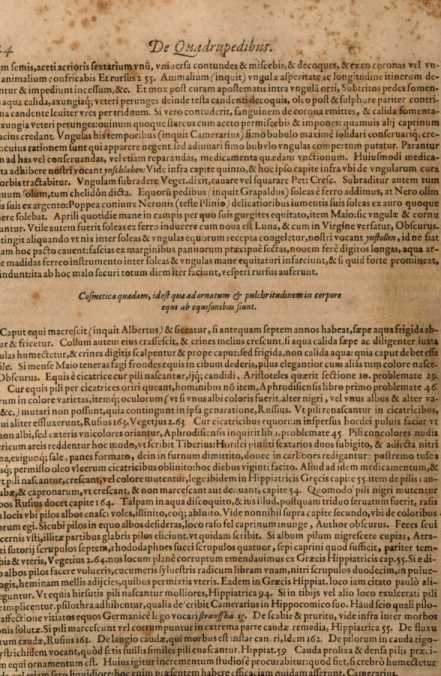 De Quadrupedibus.
m semis, aceti acrioris sextarium vnũ, vniuersa contundes & miscebis, & decoques, & ex eo coronas vel vn-
animalium confricabis Et rursus 2 53. Animalium (inquit) vngulæ asperitate ac longitudine itinerum de-
ntur & impediunt incessum, &c. Et mox post curam apostematis intra vngulã orti, Subtritos pedes
aqua calida, axungiaq; veteri perunges deinde testa candenti decoquis, oleo post & sulphure pariter contri-
na candente leuiter vres pertridium. Si vero contuderis, sanguinem de corona emittes, & calida fomenta-
xungia veteri perunges: ouum quoque struthi cum aceto permiscebis & impones: quamuis alij capminum
acius credant. Vngulas bis temporibus (inquit Camerarius) fimo bubulo maxime solidari conseruariq;, cre-
cuius rationem sunt qui apparere negent. sed adiunari fimo bubulo vngulas compertum putatur. Parantur
n ad has vel conseruandas, vel etiam reparandas, medicamenta quædam vnctionum. Huiusmodi medica-
ta adhibere nostri vocant Vide infra capite quinto, & hoc ipso capite infra vbi de vngularum cura
orbis tractabitur. Vngulam subradere, Veget. dixit, cauare vel squarare Pet Cresc. Subraditur autem tum
num solum, tum chelidon dicta. Equorũ pedibus (inquit Grapaldus) soleas è ferro addimus, at Nero olim
is suis ex argento: Poppea coniunx Neronis (teste Plinio) delicatioribus iumentis suis soleas ex auro quoque
ere solebat. Aprili quotidie mane in campis per quo suis gurgites equitato, item Maio: sic vngulæ & cornu
antur. Vtile autem fuerit soleas ex ferro inducere cum noua est Luna, & cum in Virgine versatur, Obscurus.
tingit aliquando vt nix inter soleas & vngulas equorum recepta congeletur, nostri vocant id ne fiat
am hoc pacto cauent: fascias ex marginibus pannorum præcipuè socras, nouem ferè digitos longas, aqua ar-
e madidas ferreo instrumento inter soleas & vngulas mane equitaturi infarciunt, & si quid forte prominens,
indunt: ita ab hoc malo securi totum diem iter faciunt, vesperi rursus auferunt.
Cosmetica quædam, id est quæ ad ornatum & pulchritudinem in corpore
equi ab equisonibus fiunt.
Caput equi macrescit (inquit Albertus) & siccatur, si antequam septem annos habeat, sæpe aqua frigida ab-
ur & fricetur. Collum autem eius crassescit, & crines melius crescunt, si aqua calida sæpe ac diligenter iuxta
ulas humectetur, & crines digitis scalpentur & prope caput: sed frigida, non calida aqua: quia caput debet esse
ile. Si mense Maio teneras fagi frondes equis in cibum dederis, pilus elegantior cum alias tum colore nasce-
Obscurus. Equis è cicatrice cur pili nascantur, ijq; candidi, Aristoteles quærit sectione 10. problemate 29.
Cur equis pili per cicatrices oriri queant, hominibus nõ item, Aphrodisiensis libro primo problemate 46.
rum in colore varietas, item; oculorum (vt si vnus albi coloris fuerit, alter nigri, vel vnus albus & alter va-
&c.) mutari non possunt, quia contingunt in ipsa generatione, Russius. Vt pili renascantur in cicatricibus,
ui aliter effluxerunt, Rusius 165. Vegetius 2.63. Cur cicatricibus equorum in spersus hordei puluis faciat vt
non albi, sed cæteris vnicolores oriantur, Aphrodisiensis inquirit lib 1. problemate 45 Pili concolores nudã
tricum areis reddentur hoc modo, vt scribit Tiberius: Hordei iniusti sextarios duos subigito, &
na, exiguoq; sale, panes formato, dein in furnum dimittito, donec in carbones redigantur: postremo tusos
sq; permisto oleo vlcerum cicatricibus oblinito: hoc diebus viginti facito. Aliud ad idem medicamentum, &
t pili nascantur, crescant, vel colore mutentur, lege ibidem in Hippiatricis Græcis capite 55. item de pilis
ubæ, & caprionarum, vt crescant, & non marcescant aut decuant, capite 54. Quomodo pili nigri mutentur
bos Rusius docet capite 164. Talpam in aqua discoquito, sed & postquam triduo
loco vbi pilos albos enasci voles, illinito, coq; abluito. Vide nonnihil supra capite secundo, vbi de coloribus
orum egi. Sic vbi pilos in equo albos desideras, loco raso fel caprinum inunge, Author obscurus. Feces seui
cernis vsti, illitæ partibus glabris pilos eliciunt, vt quidam scribit. Si album pilum nigrescere cupias, Atra-
ti sutorij scrupulos septem, rhododaphnes succi scrupulos quatuor, sepi caprini quod sufficit, pariter tem-
bis & vteris, Vegetius 2.64. nos locum planè corruptum emendauimus ex Græcis Hippiatricis cap. 55. Si è di-
o albos pilos facere volueris, cucumeris syluestris radicem libram vnam, nitri scrupulos duodecim, in puluere
ogis, heminam mellis adijcies, quibus permixtis vteris. Eadem in Græcis Hippiat. loco iam citato paulò ali-
guntur. Vt equis hirsutis pili nascantur molliores, Hippiatrica 94. Si in tibijs vel alio loco exulcerati pili
implicentur, psilothra adhibentur, qualia describit Camerarius in Hippocomico suo. Haud scio quali pilo-
affectione vitiatos equos Germanicè lego vocari De scabie & pruritu, vide infra inter morbos
quis solutæ. Si pili marcescunt vel corrumpuntur in extrema parte caudæ remedia, Hippiatrica 55. De fluxu
um caudæ, Rusius 163. De langio caudæ, qui morbus est instar can. ri, Idem 162. De pilorum in cauda rigo-
ystrichidem vocant, quòd setis suillis similes pili enascantur. Hippiat.59 Cauda prolixa & densa pilis præ i-
m equi ornamentum est. Huius igitur incrementum studiose procurabitur: quod fiet, si crebrò humectetur